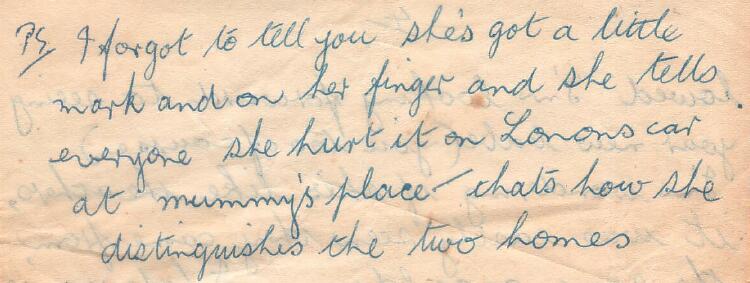 PS I forgot to tell you she's got a little
mark and on her finger and she tells
everyone she hurt it on Lonons car
at mummy's place – thats how she
distinguishes the two homes